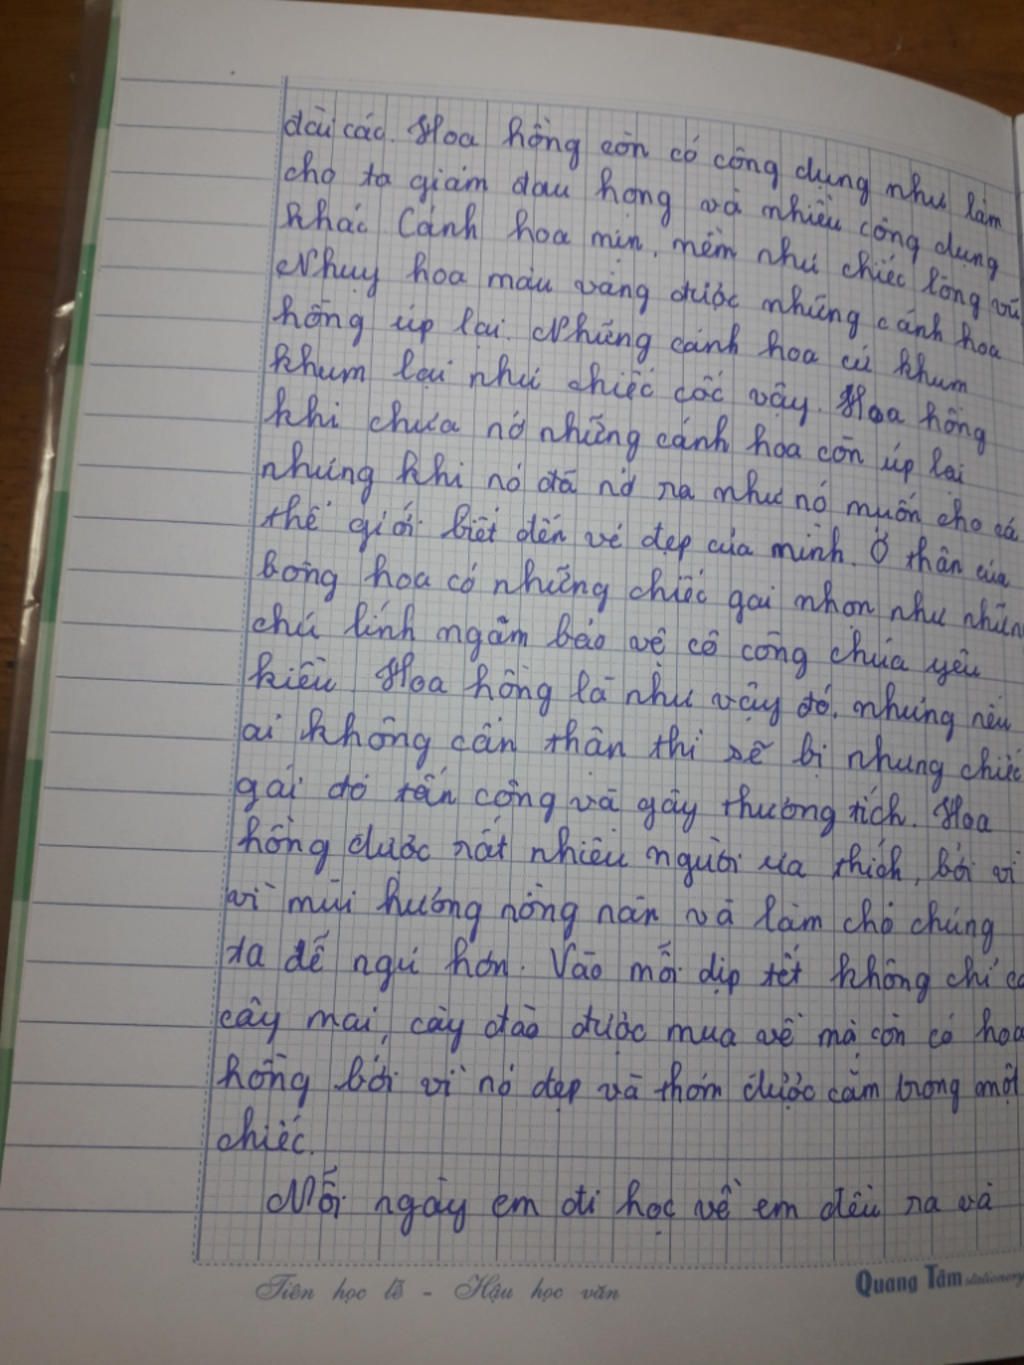 đài các. Hoa hồng còn có công dụng như làm
cho ta giảm đau họng và nhiều công dụng
khác Cánh hoa mịn, mềm như chiếc lông vũ
Nhụy hoa màu vàng được những cánh hoa
hồng úp lại. Những cánh hoa cứ khum
khum lại như chiếc cốc vậy. Hoa hồng
khi chưa nở những cánh hoa còn úp lại
nhưng khi nó đã nở ra như nó muốn cho cả
thế giới biết đến vẻ đẹp của mình. Ở thân của
bông hoa có những chiếc gai nhọn như những
chú lính ngầm bảo vệ cô công chúa yêu
kiều. Hoa hồng là như vậy đó, nhưng nếu
ai không cẩn thận thì sẽ bị nhưng chiếc
gai đó tấn công và gây thương tích. Hoa
hồng được rất nhiều người ưa thích, bởi vì
vì mùi hương nồng nàn và làm cho chúng
ta dễ ngủ hơn. Vào mỗi dịp tết không chỉ có
cây mai, cây đào được mua về mà còn có hoa
hồng bởi vì nó đẹp và thơm được cắm trong một
chiếc.
Mỗi ngày em đi học về em đều ra và
Tiên học lễ - Hậu học văn
Quang Tâm stationery